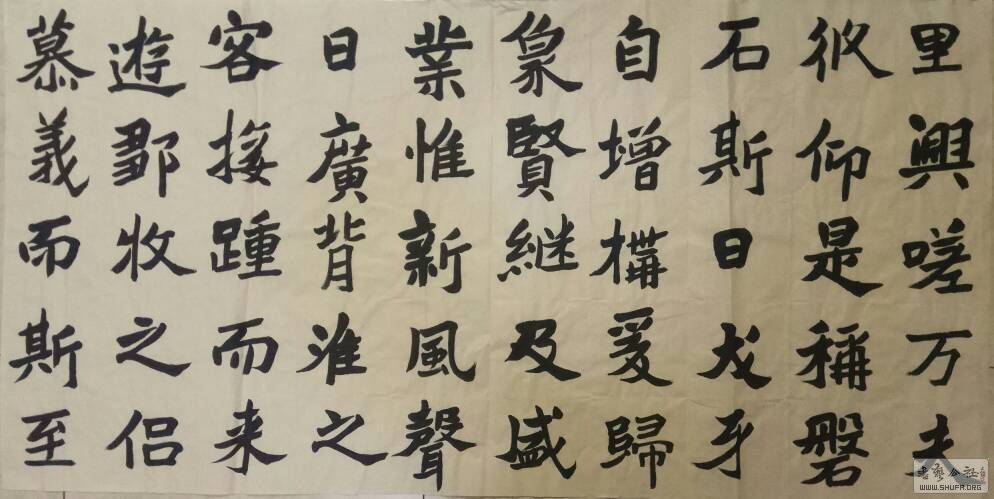 里興嗟万夫
攸仰是稱磐
石斯日犬牙
自增構爰歸
象賢継及盛
業惟新風聲
日廣背淮之
客接踵而来
遊鄒牧之侣
慕義而斯至
書藝公社
WWW.SHUFA.ORG